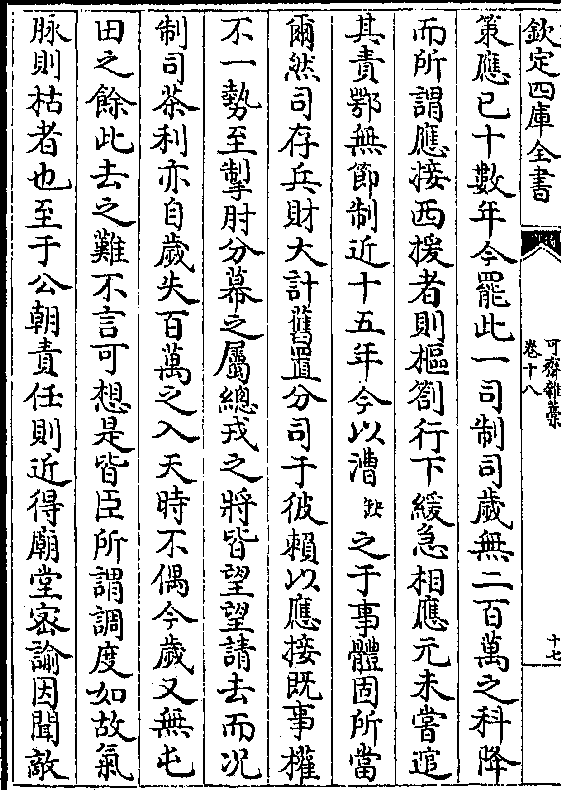 欽定四庫全書
可齋雜藁
卷十八
十七
策應已十數年今罷此一司制司歲無二百萬之科降
而所謂應接西援者則樞劄行下緩急相應元未嘗逭
其責鄂無節制近十五年今以漕缺之于事體固所當
爾然司存兵財大計舊置分司于彼賴以應接既事權
不一勢至掣肘分幕之屬總戎之將皆望望請去而况
制司茶利亦自歲失百萬之入天時不偶今歲又無屯
田之餘此去之難不言可想是皆臣所謂調度如故氣
脉則枯者也至于公朝責任則近得廟堂宻諭因聞敵